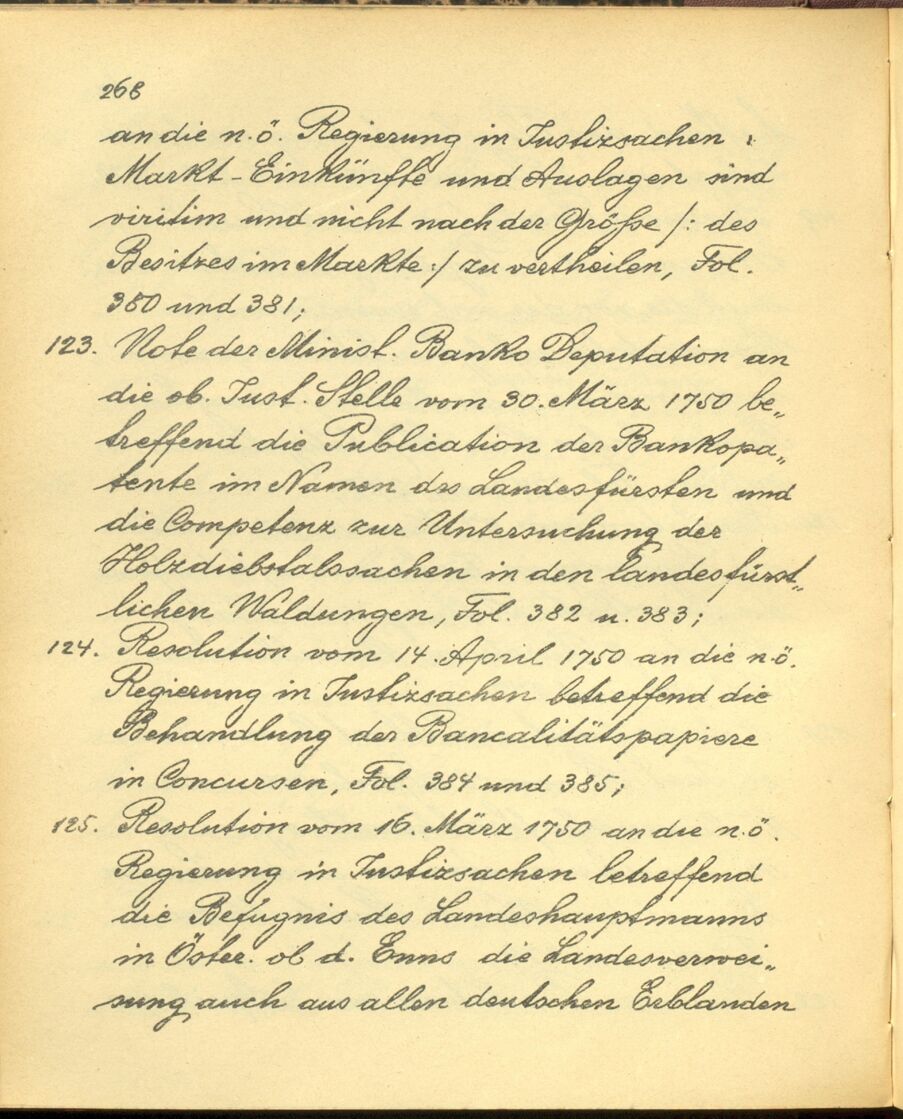 268
an die n.ö. Regierung in Justizsachen :
Markt-Einkünfte und Auslagen sind
viritim und nicht nach der Größe /: des
Besitzes im Markte :/ zu vertheilen, Fol.
380 und 381;
123. Note der Minist. Banko Deputation an
die ob. Just. Stelle vom 30. März 1750 be„
treffend die Publication der Bankopa„
tente im Namen des Landesfürsten und
die Competenz zur Untersuchung der
Holzdiebstalssachen in den landesfürst„
lichen Waldungen, Fol. 382 u. 383;
124. Resolution vom 14. April 1750 an die n.ö.
Regierung in Justizsachen betreffend die
Behandlung der Bancalitätspapiere
in Concursen, Fol. 384 und 385;
125. Resolution vom 16. März 1750 an die n.ö.
Regierung in Justizsachen betreffend
die Befugnis des Landeshauptmanns
in Öster. ob d. Enns die Landesverwei„
sung auch aus allen deutschen Erblanden